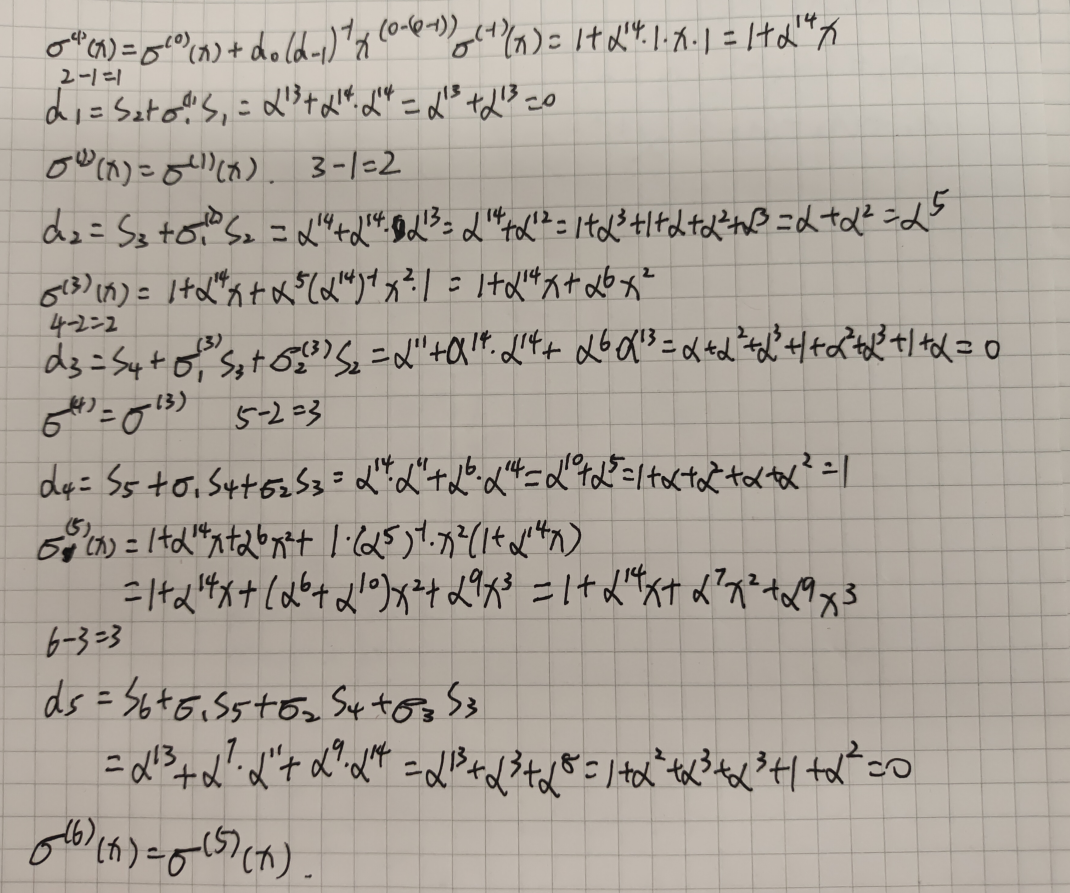 σ⁽¹⁾(x)=σ⁽⁰⁾(x)+d₀(d₋₁)⁻¹x^(0-(0-1))σ⁽⁻¹⁾(x)=1+α¹⁴·1·x·1=1+α¹⁴x
2-1=1
d₁=S₂+σ₁⁽¹⁾S₁=α¹³+α¹⁴·α¹⁴=α¹³+α¹³=0
σ⁽²⁾(x)=σ⁽¹⁾(x). 3-1=2
d₂=S₃+σ₁⁽²⁾S₂=α¹⁴+α¹⁴·α¹³=α¹⁴+α¹²=1+α³+1+α+α²+α³=α+α²=α⁵
σ⁽³⁾(x)=1+α¹⁴x+α⁵(α¹⁴)⁻¹x²·1=1+α¹⁴x+α⁶x²
4-2=2
d₃=S₄+σ₁⁽³⁾S₃+σ₂⁽³⁾S₂=α¹¹+α¹⁴·α¹⁴+α⁶α¹³=α+α²+α³+1+α²+α³+1+α=0
σ⁽⁴⁾=σ⁽³⁾ 5-2=3
d₄=S₅+σ₁S₄+σ₂S₃=α¹⁴·α¹¹+α⁶·α¹⁴=α¹⁰+α⁵=1+α+α²+α+α²=1
σ⁽⁵⁾(x)=1+α¹⁴x+α⁶x²+1·(α⁵)⁻¹·x²(1+α¹⁴x)
=1+α¹⁴x+(α⁶+α¹⁰)x²+α⁹x³=1+α¹⁴x+α⁷x²+α⁹x³
6-3=3
d₅=S₆+σ₁S₅+σ₂S₄+σ₃S₃
=α¹³+α⁷·α¹¹+α⁹·α¹⁴=α¹³+α³+α⁸=1+α²+α³+α³+1+α²=0
σ⁽⁶⁾(x)=σ⁽⁵⁾(x).